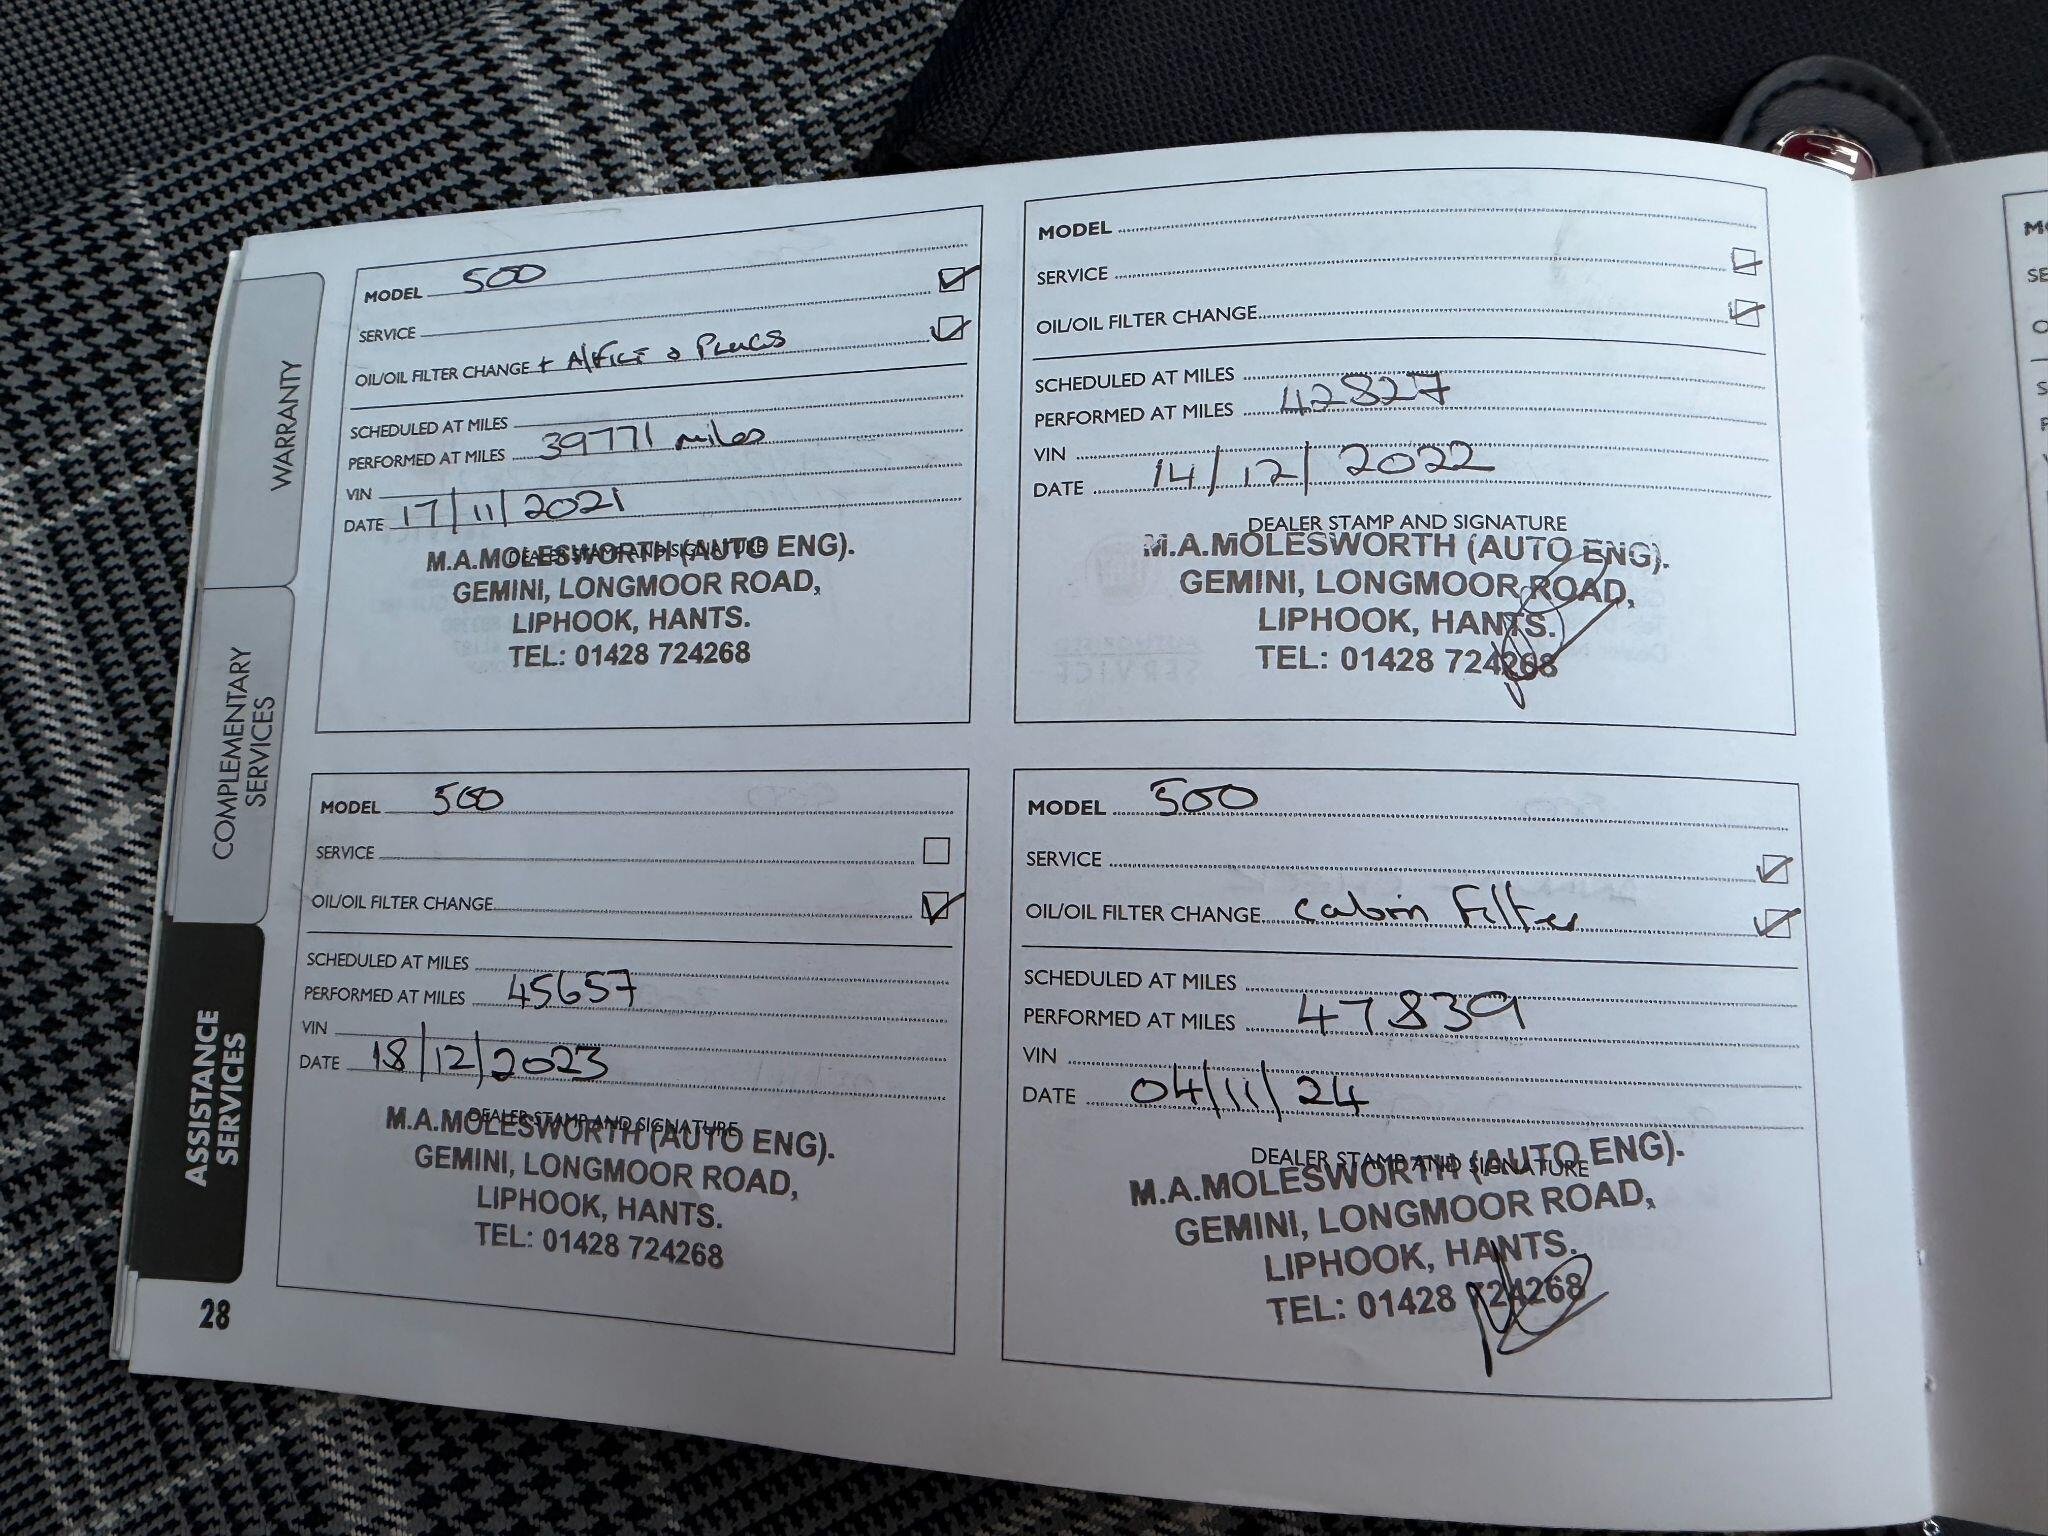 WARRANTY
COMPLEMENTARY
SERVICES
ASSISTANCE
SERVICES
28
MODEL 500
SERVICE
OIL/OIL FILTER CHANGE + A/FILT & PLUGS
SCHEDULED AT MILES
PERFORMED AT MILES 39771 miles
VIN
DATE 17/11/2021
DEALER STAMP AND SIGNATURE
M.A.MOLESWORTH (AUTO ENG).
GEMINI, LONGMOOR ROAD,
LIPHOOK, HANTS.
TEL: 01428 724268
MODEL
SERVICE
OIL/OIL FILTER CHANGE
SCHEDULED AT MILES
PERFORMED AT MILES 42827
VIN
DATE 14/12/2022
DEALER STAMP AND SIGNATURE
M.A.MOLESWORTH (AUTO ENG).
GEMINI, LONGMOOR ROAD,
LIPHOOK, HANTS.
TEL: 01428 724268
MODEL 500
SERVICE
OIL/OIL FILTER CHANGE
SCHEDULED AT MILES
PERFORMED AT MILES 45657
VIN
DATE 18/12/2023
DEALER STAMP AND SIGNATURE
M.A.MOLESWORTH (AUTO ENG).
GEMINI, LONGMOOR ROAD,
LIPHOOK, HANTS.
TEL: 01428 724268
MODEL 500
SERVICE
OIL/OIL FILTER CHANGE Cabin Filter
SCHEDULED AT MILES
PERFORMED AT MILES 47839
VIN
DATE 04/11/24
DEALER STAMP AND SIGNATURE
M.A.MOLESWORTH (AUTO ENG).
GEMINI, LONGMOOR ROAD,
LIPHOOK, HANTS.
TEL: 01428 724268